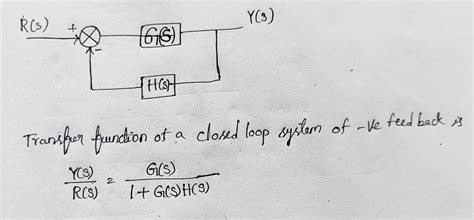 R(s) + Y(s)
G(S)
-
H(s)
Transfer function of a closed loop system of -ve feedback is
Y(s) / R(s) = G(s) / 1 + G(s)H(s)